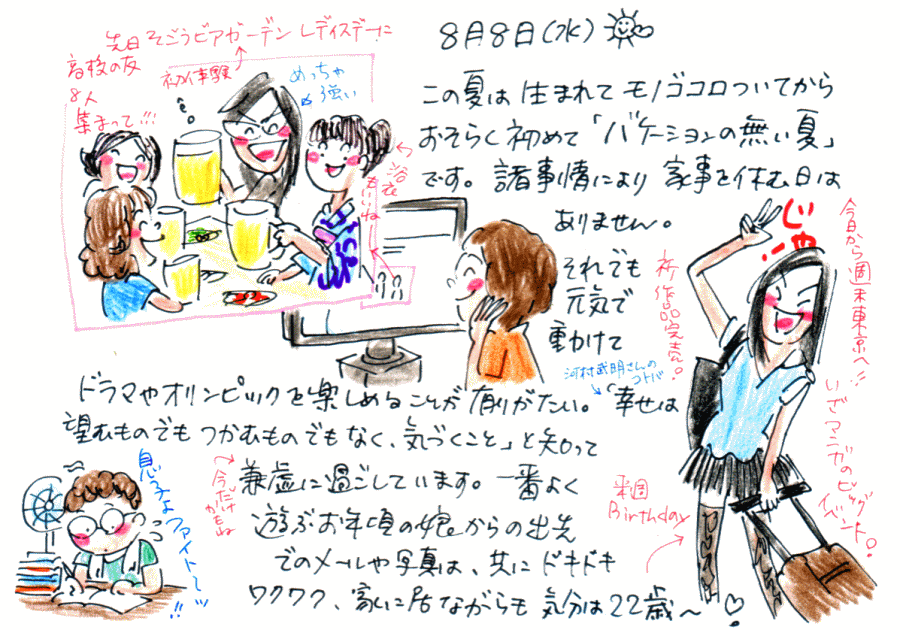 8月8日(水)
先日 そごうビアガーデン レディスデーに
初体験
高校の友
8人
集まって!!!
めっちゃ
強い
浴衣
もいいね
この夏は 生まれて モノゴコロついてから
おそらく初めて「バケーションの無い夏」
です。諸事情により 家事を休む日は
ありません。
それでも
元気で
動けて
河村武明さんの
コトバ
ドラマやオリンピックを楽しめることが有りがたい。「幸せは
望むものでも つかむものでもなく、気づくこと」と知って
謙虚に過ごしています。一番よく
今だけ
かもね
遊ぶお年頃の娘からの出先
でのメールや写真は、共に ドキドキ
ワクワク、家に居ながらも 気分は22歳〜
息子よファイト〜ッ!!
今日から週末東京へ!!
いざマンガのビッグ
イベント。
新作品完売。
来週
Birthday